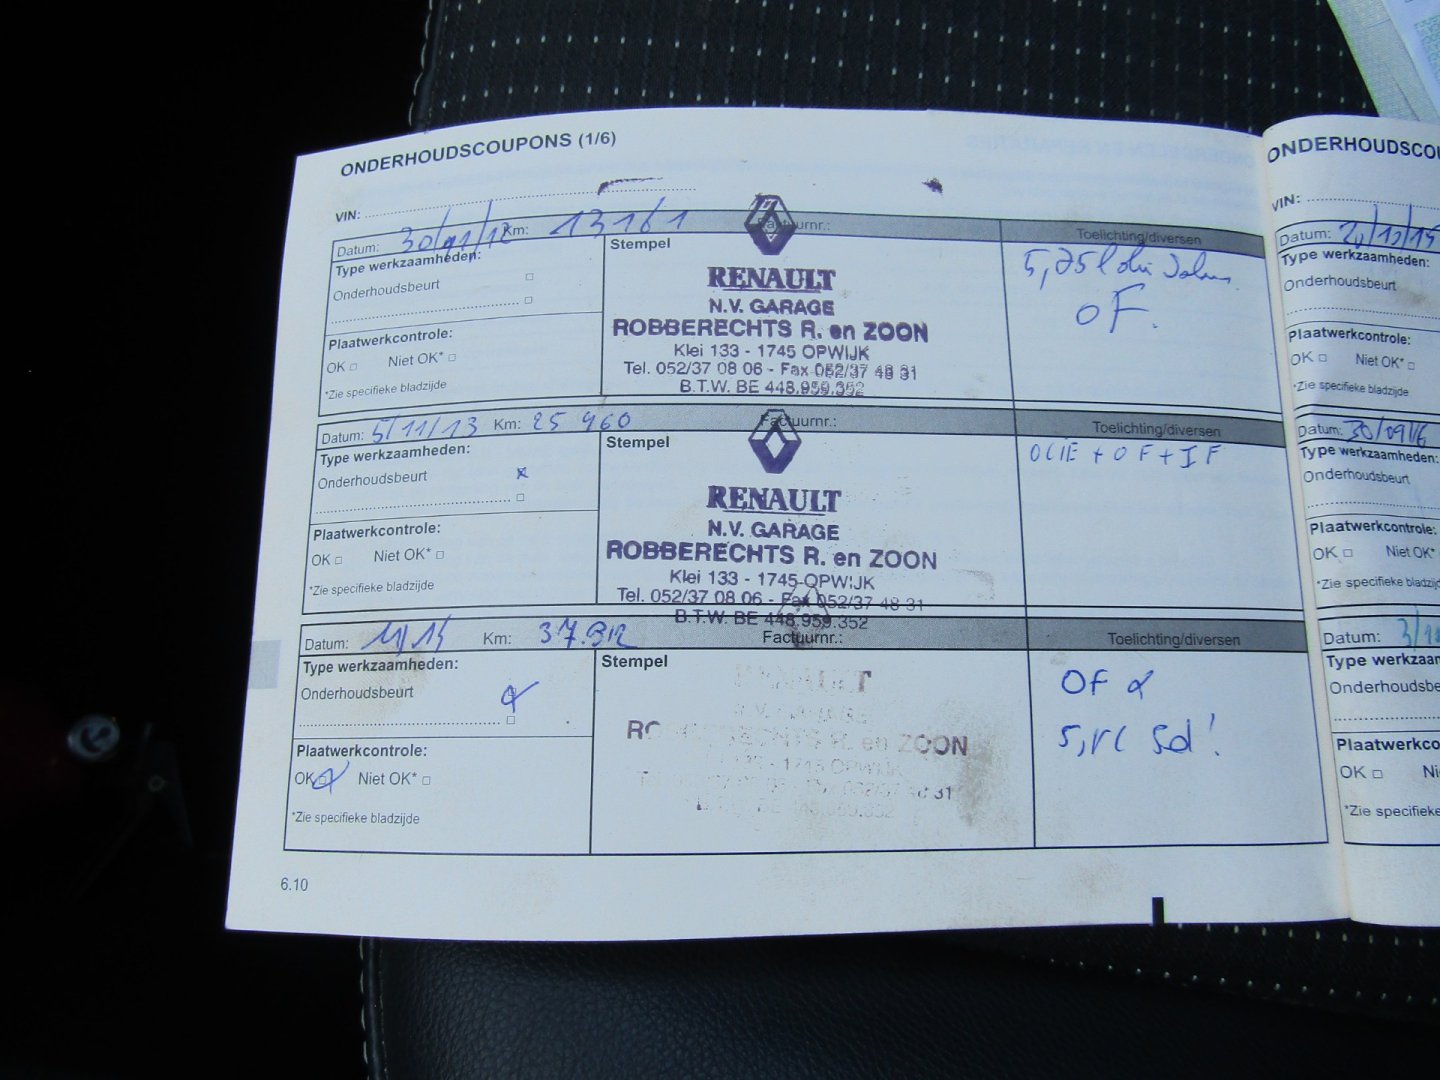 ONDERHOUDSCOUPONS (1/6)
VIN:
Datum: Km: 13161 Factuurnr.: Toelichting/diversen
Type werkzaamheden:
Onderhoudsbeurt
Plaatwerkcontrole:
OK Niet OK*
*Zie specifieke bladzijde
Stempel
RENAULT
N.V. GARAGE
ROBBERECHTS R. en ZOON
Klei 133 - 1745 OPWIJK
Tel. 052/37 08 06 - Fax 052/37 48 31
B.T.W. BE 448.959.352
OF.
Datum: 5/11/13 Km: 25 460 Factuurnr.: Toelichting/diversen
Type werkzaamheden:
Onderhoudsbeurt x
Plaatwerkcontrole:
OK Niet OK*
*Zie specifieke bladzijde
Stempel
RENAULT
N.V. GARAGE
ROBBERECHTS R. en ZOON
Klei 133 - 1745 OPWIJK
Tel. 052/37 08 06 - Fax 052/37 48 31
B.T.W. BE 448.959.352
OLIE + OF + IF
Datum: Km: 37.912 Factuurnr.: Toelichting/diversen
Type werkzaamheden:
Onderhoudsbeurt
Plaatwerkcontrole:
OK Niet OK*
*Zie specifieke bladzijde
Stempel
ROBBERECHTS R. en ZOON
OF
6.10
ONDERHOUDSCOU
VIN:
Datum:
Type werkzaamheden:
Onderhoudsbeurt
Plaatwerkcontrole:
OK Niet OK*
*Zie specifieke bladzijde
Datum: 30/09/16
Type werkzaamheden:
Onderhoudsbeurt
Plaatwerkcontrole:
OK Niet OK*
*Zie specifieke bladzij
Datum:
Type werkzaam
Onderhoudsbe
Plaatwerkco
OK Ni
*Zie specifieke